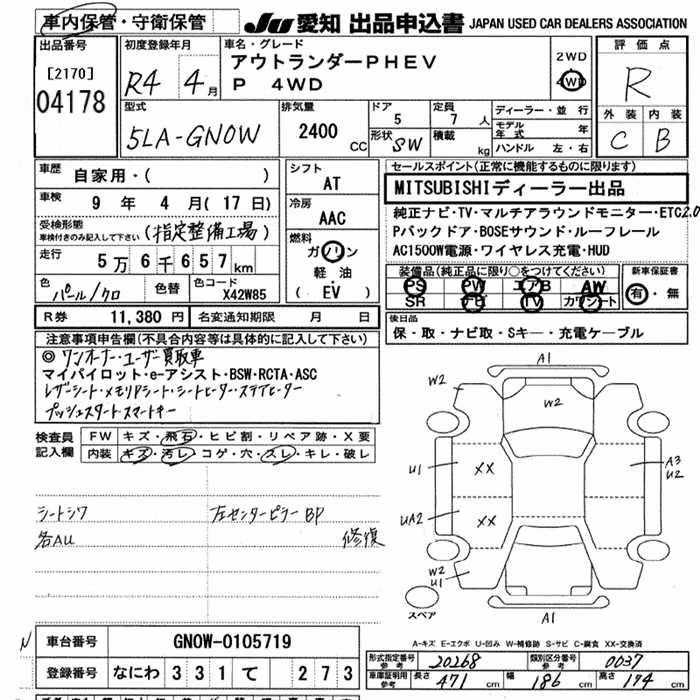 車内保管・守衛保管
JU 愛知 出品申込書 JAPAN USED CAR DEALERS ASSOCIATION
出品番号
[2170]
04178
初度登録年月
R4 4月
車名・グレード
アウトランダーPHEV
P 4WD
2WD
4WD
評価点
R
外装 内装
C B
型式
5LA-GN0W
排気量
2400 CC
ドア
5
形状
SW
定員
7 人
積載
kg
ディーラー・並行
モデル年式 年
ハンドル 左・右
車歴
自家用・( )
車検
9 年 4 月 (17 日)
受検形態
車検付きのみ記入して下さい
(指定整備工場)
走行
5万6千657km
色
パール/クロ
色替
色コード
X42W85
シフト
AT
冷房
AAC
燃料
ガソリン
軽油
(EV)
セールスポイント(正常に機能するものに限ります)
MITSUBISHIディーラー出品
純正ナビ・TV・マルチアラウンドモニター・ETC2.0
Pバックドア・BOSEサウンド・ルーフレール
AC1500W電源・ワイヤレス充電・HUD
装備品(純正品に限り○をつけてください)
PS PW エアB AW
SR ナビ TV カワシート
新車保証書
有・無
R券 11,380 円
名変通知期限 月 日
後日品
保・取・ナビ取・Sキー・充電ケーブル
注意事項申告欄(不具合内容等は具体的に記入して下さい)
◎ワンオーナー・ユーザー買取車
マイパイロット・e-アシスト・BSW・RCTA・ASC
レザーシート・メモリPシート・シートヒーター・ステアヒーター
プッシュスタート・スマートキー
検査員記入欄
FW キズ・飛石・ヒビ割・リペア跡・X要
内装 キズ・汚レ・コゲ・穴・スレ・キレ・破レ
シートシワ
各AU
左センターピラーBP
修復
A1
W2
W2
U1
XX
A3
U2
UA2
XX
W2
U1
スペア
A1
A-キズ E-エクボ U-凹み W-補修跡 S-サビ C-腐食 XX-交換済
N
車台番号
GN0W-0105719
登録番号
なにわ 331 て 273
形式指定番号
参考
20268
類別区分番号
参考
0037
車庫証明用
参考
長さ 471 cm
幅 186 cm
高さ 174 cm